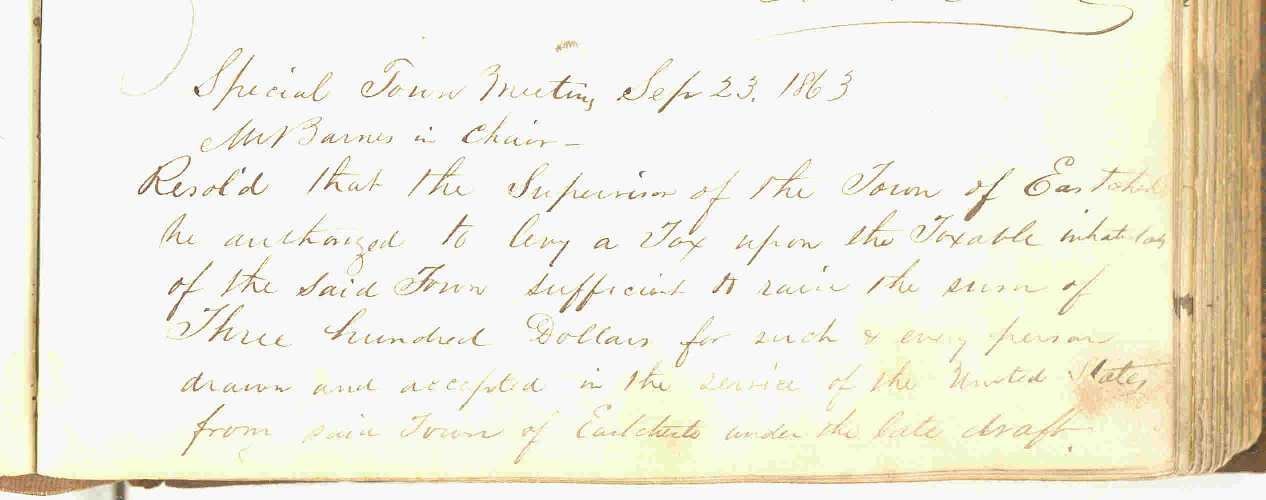 Special Town Meeting Sep 23. 1863
Mr Barnes in Chair -
Resol'd that the Supervisor of the Town of Eastchester
be authorized to levy a Tax upon the Taxable inhabitants
of the said Town sufficient to raise the sum of
Three hundred Dollars for such & every person
drawn and accepted in the service of the United States
from said Town of Eastchester under the late draft.